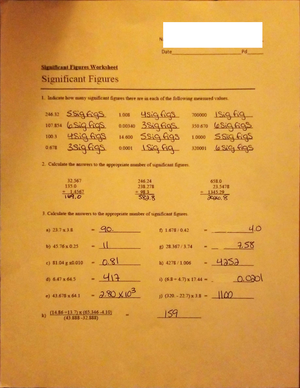 N
Date Pd
Significant Figures Worksheet
Significant Figures
1. Indicate how many significant figures there are in each of the following measured values.
246.32 5 sig figs 1.008 4 sig figs 700000 1 sig fig
107.854 6 sig figs 0.00340 3 sig figs 350.670 6 sig figs
100.3 4 sig figs 14.600 5 sig figs 1.0000 5 sig figs
0.678 3 sig figs 0.0001 1 sig fig 320001 6 sig figs
2. Calculate the answers to the appropriate number of significant figures.
32.567 246.24 658.0
135.0 238.278 23.5478
+ 1.4567 + 98.3 + 1345.29
169.0 582.8
3. Calculate the answers to the appropriate number of significant figures.
a) 23.7 x 3.8 = 90. f) 1.678 / 0.42 = 4.0
b) 45.76 x 0.25 = 11 g) 28.367 / 3.74 = 7.58
c) 81.04 g x0.010 = 0.81 h) 4278 / 1.006 = 4252
d) 6.47 x 64.5 = 417 i) (6.8 + 4.7) x 17.44 = 0.0201
e) 43.678 x 64.1 = 2.80 x 10³ j) (320. - 22.7) x 3.8 = 1100
k) (14.84 +13.7) x (65.344 -4.10) = 159
(43.888 -32.888)